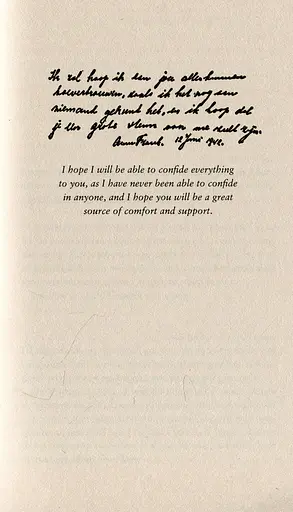 Ik zal hoop ik aan jou alles kunnen
toevertrouwen, zoals ik het nog aan
niemand gekund heb, en ik hoop dat
je een grote steun voor me zult zijn.
Anne Frank. 12 Juni 1942.
I hope I will be able to confide everything
to you, as I have never been able to confide
in anyone, and I hope you will be a great
source of comfort and support.